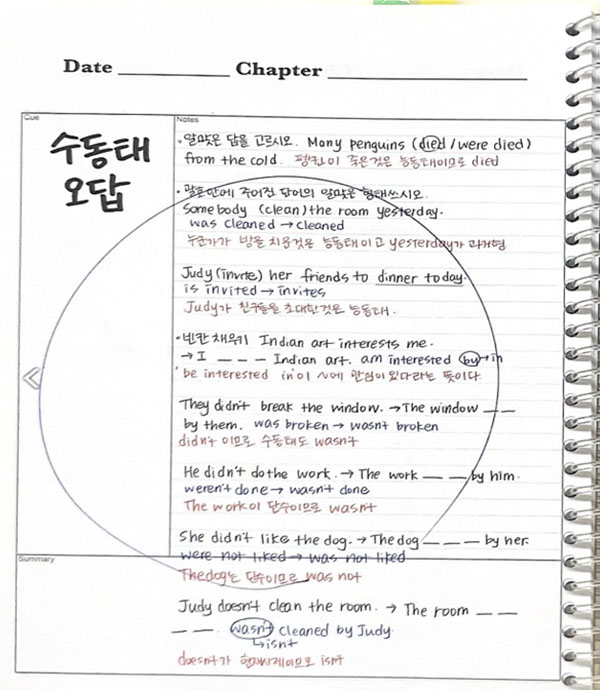 Date Chapter
Cue
Notes
수동태
오답
• 알맞은 답을 고르시오. Many penguins (died / were died)
from the cold. 펭귄이 죽은것은 능동태이므로 died
• 괄호안에 주어진 단어의 알맞은 형태쓰시오.
Somebody (clean) the room yesterday.
was cleaned → cleaned
누군가가 방을 치운것은 능동태이고 yesterday가 과거형
Judy (invite) her friends to dinner today.
is invited → invites
Judy가 친구들을 초대한것은 능동태.
• 빈칸 채우기 Indian art interests me.
→ I _ _ _ Indian art. am interested by → in
be interested in이 ~에 관심이 있다라는 뜻이다
They didn't break the window. → The window _ _
by them. was broken → wasn't broken
didn't 이므로 수동태도 wasn't
He didn't do the work. → The work _ _ by him.
weren't done → wasn't done
The work이 단수이므로 wasn't
She didn't like the dog. → The dog _ _ _ by her.
were not liked → was not liked
Summary
The dog는 단수이므로 was not
Judy doesn't clean the room. → The room _ _
_ _. wasn't cleaned by Judy.
↳ isn't
doesn't가 현재시제이므로 isn't